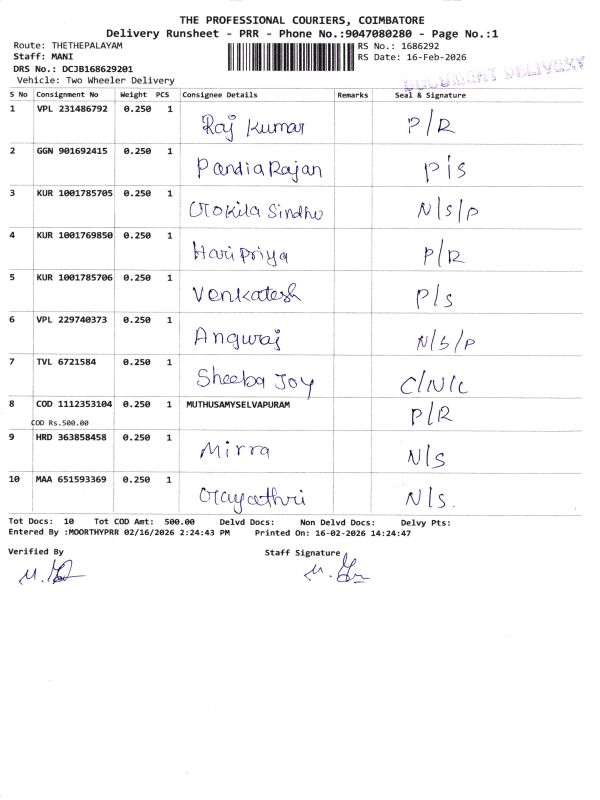 THE PROFESSIONAL COURIERS, COIMBATORE
Delivery Runsheet - PRR - Phone No.:9047080280 - Page No.:1
Route: THETHEPALAYAM RS No.: 1686292
Staff: MANI RS Date: 16-Feb-2026
DRS No.: DCJB168629201
Vehicle: Two Wheeler Delivery
DOCUMENT DELIVERY
S No Consignment No Weight PCS Consignee Details Remarks Seal & Signature
1 VPL 231486792 0.250 1 Raj Kumar P/R
2 GGN 901692415 0.250 1 Pandia Rajan P/S
3 KUR 1001785705 0.250 1 Gokila Sindhu N/S/P
4 KUR 1001769850 0.250 1 Hari Priya P/R
5 KUR 1001785706 0.250 1 Venkatesh P/S
6 VPL 229740373 0.250 1 Anguraj N/S/P
7 TVL 6721584 0.250 1 Sheeba Joy C/N/C
8 COD 1112353104 0.250 1 MUTHUSAMYSELVAPURAM P/R
COD Rs.500.00
9 HRD 363858458 0.250 1 Mirra N/S
10 MAA 651593369 0.250 1 Gayathri N/S.
Tot Docs: 10 Tot COD Amt: 500.00 Delvd Docs: Non Delvd Docs: Delvy Pts:
Entered By :MOORTHYPRR 02/16/2026 2:24:43 PM Printed On: 16-02-2026 14:24:47
Verified By Staff Signature